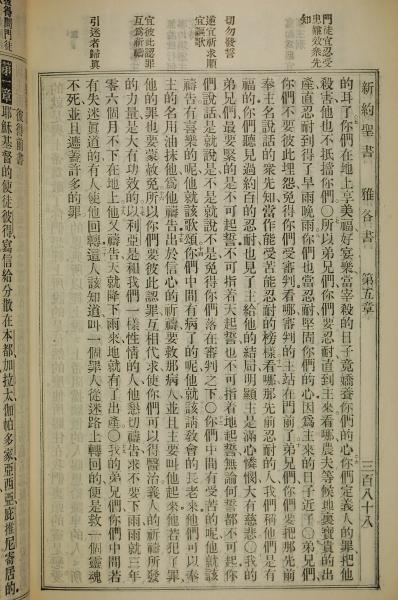 新約聖書 雅各書 第五章 三百八十八
的耳了你們在地上享美福好宴樂當宰殺的日子竟嬌養你們的心你們定義人的罪把他
殺害他也不抵擋你們〇所以弟兄們你們要忍耐直到主來看哪農夫等候地裏寶貴的出
產直忍耐到得了早雨晚雨你們也當忍耐堅固你們的心因爲主來的日子近了〇弟兄們
你們不要彼此埋怨免得你們受審判看哪審判的主站在門前了弟兄們你們要把那先前
奉主名說話的衆先知當作能受苦能忍耐的榜樣看哪那先前忍耐的人我們稱他們是有
福的你們聽見過約百的忍耐也見了主給他的結局明顯主是滿心憐憫大有慈悲〇我的
弟兄們最要緊的是不可起誓不可指着天起誓也不可指着地起誓無論何誓都不可起你
們說話是就說是不是就說不是免得你們落在審判之下〇你們中間有受苦的呢他就該
禱告有喜樂的呢他就該歌頌你們中間有病了的呢他就該請教會的長老來他們可以奉
主的名用油抹他爲他禱告出於信心的祈禱要救那病人並且主要叫他起來他若犯了罪
他的罪也要蒙赦免所以你們要彼此認罪互相代求使你們可以得醫治義人的祈禱所發
的力量是大有功效的以利亞是和我們一樣性情的人他懇切禱告求不要下雨雨就三年
零六個月不下在地上他又禱告天就降下雨來地就有了出產〇我的弟兄們你們中間若
有失迷眞道的有人使他回轉這人該知道叫一個罪人從迷路上轉回的便是救一個靈魂
不死並且遮蓋許多的罪
門徒宜忍受
患難效衆先
知
切勿發誓
遭宜祈求順
宜謳歌
宜彼此認罪
互爲祈禱
引迷者歸眞
彼得前書
第一章
耶穌基督的使徒彼得寫信給分散在本都加拉太伽帕多家亞西亞庇推尼寄居的